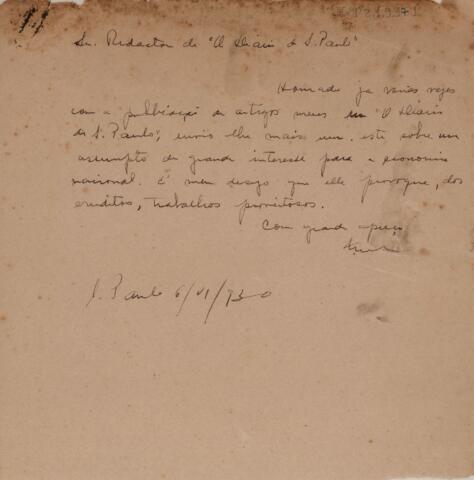 Sr. Redactor do "O Diario de S. Paulo"
Honrado ja varias vezes
com a publicação de artigos meus em "O Diario
de S. Paulo", envio lhe mais um, este sobre um
assumpto de grande interesse para a economia
nacional. É meu desejo que elle provoque, dos
eruditos, trabalhos proveitosos.
Com grande apreço
S. Paulo 6/VI/930